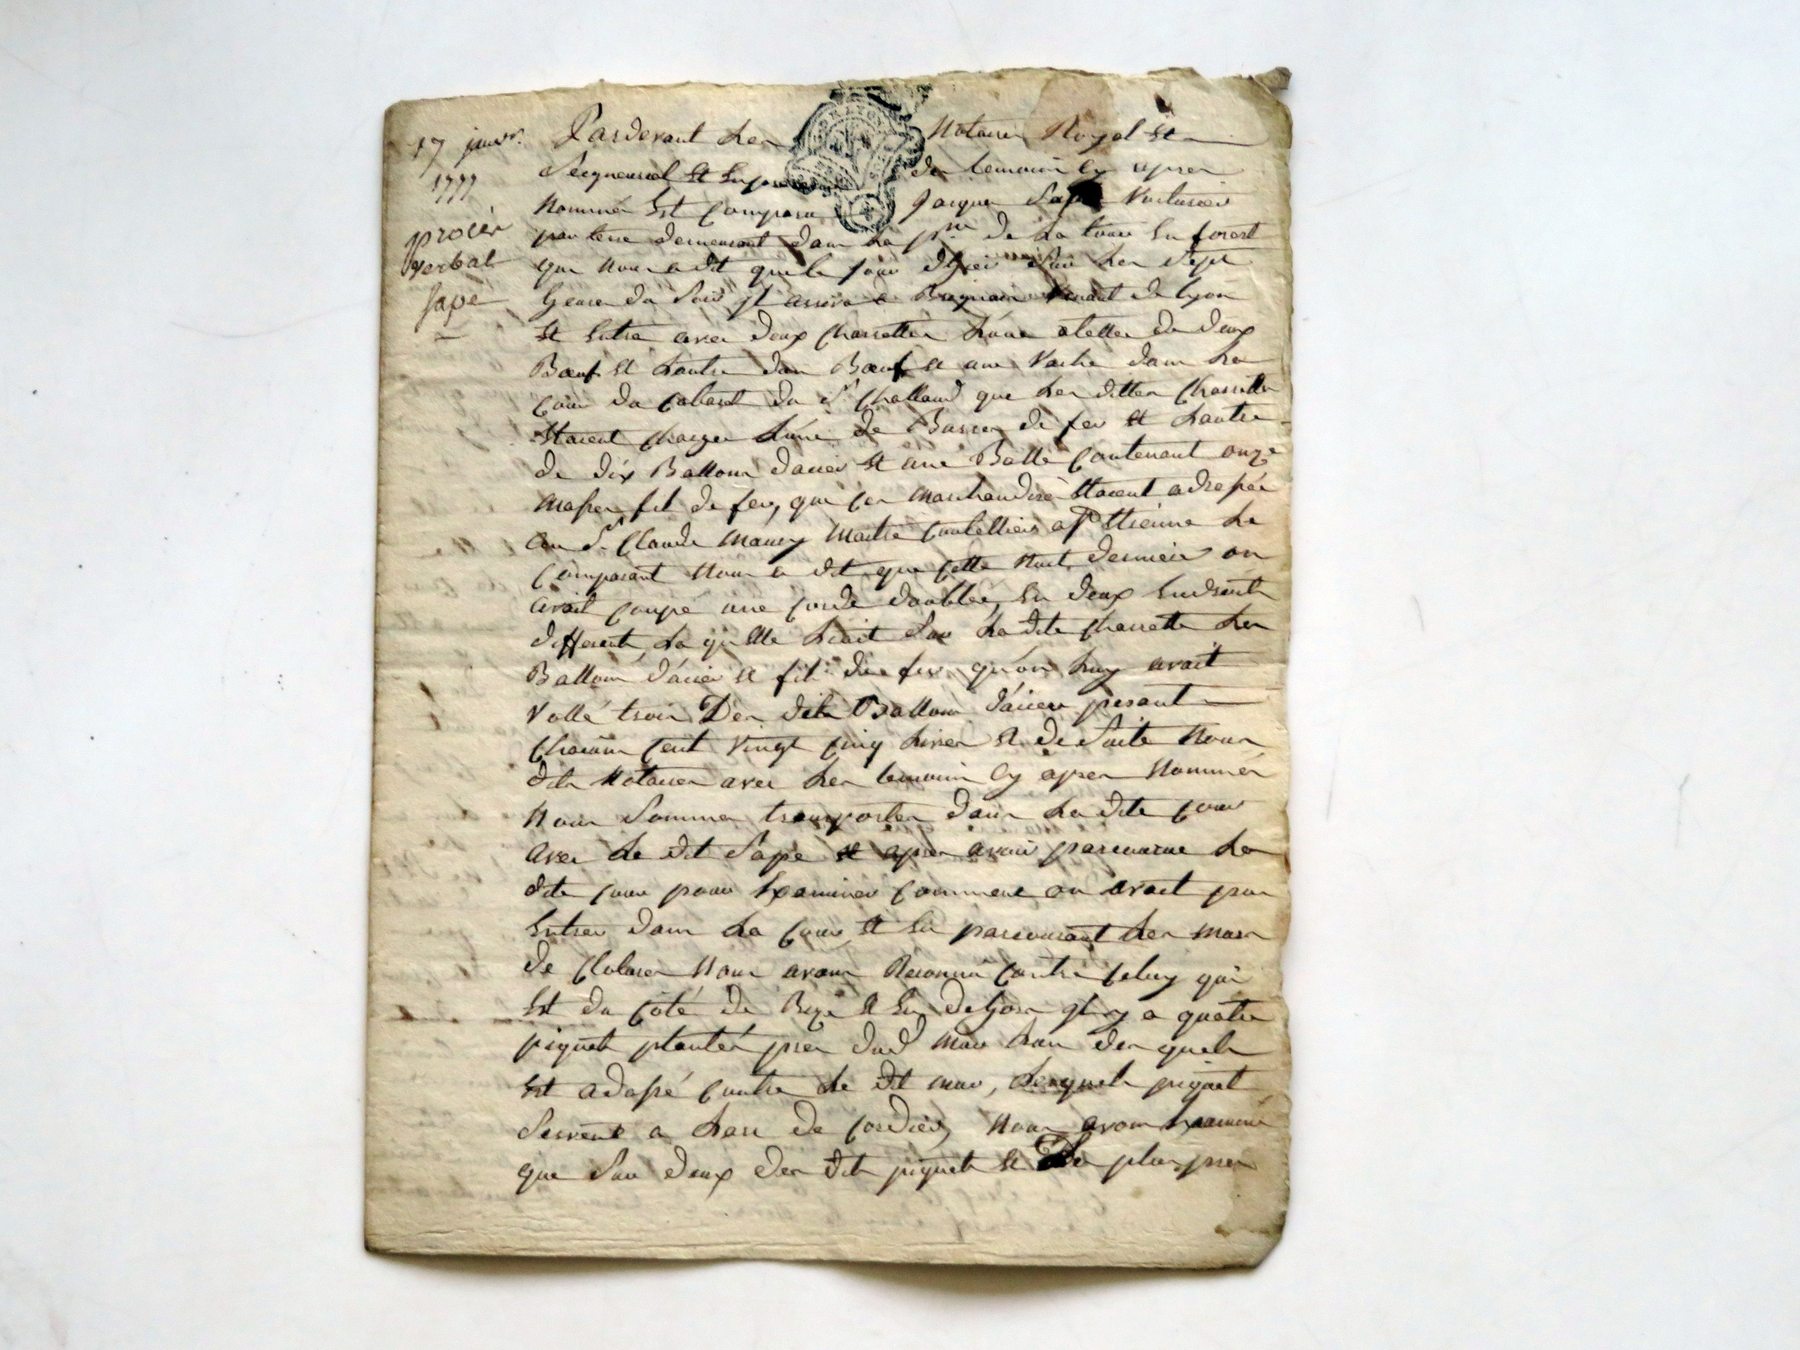 17 janvr.
1777
procès
verbal
sapé
Pardevant Les Notaires Royal Et
Seigneurial Et En présence des temoins Cy apres
Nommés Est Comparu Jacques Sapé Voiturier
par terre demeurant dans La psse de La tour En forest
qui nous a dit que le jour d'hier sur Les Sept
heures du Soir jl arriva a Venant de Lyon
Et Entra avec deux Charrettes Lune atellée de deux
Bœuf Et Lautre d'un Bœuf Et une Vache dans La
Cour du Cabaret du Sr Challand que Les dittes Charrettes
Etaient Chargée Lune de Barres de fer Et Lautre
de dix Ballons d'acier Et une Balle Contenant onze
masses fil de fer, que Ces Marchandises Etaient adressée
au Sr Claude Mauny Maitre Coutellier a St Etienne Le
Comparant Nous a dit que Cette Nuit derniere on
avait Coupé une Corde doublée, En deux Endroits
differents, La quelle Liait Sur La dite Charrette Les
Ballons d'acier Et fil de fer qu'on Luy avait
Vollé trois Des dits Ballons d'acier pesant
Chacun Cent Vingt Cinq Livres Et de Suite Nous
dits Notaires avec Les temoins Cy apres Nommés
Nous Sommes transportés dans La dite Cour
avec Le dit Sapé Et apres avoir parcourue La
dite Cour pour Examiner Comment on avait pau
Entrer dans La Cour Et En parcourant Les murs
de Clotures Nous avons Reconnu Contre Celuy qui
Est du Coté de Bize Et En dehors jl y a quatre
piquets plantés pres dud mur Lun des quels
Est adossé Contre Le dit mur, Lesquels piquets
Servent a Lart de Cordier, Nous avons Examiné
que Sur deux des dits piquets Et Les plus pres